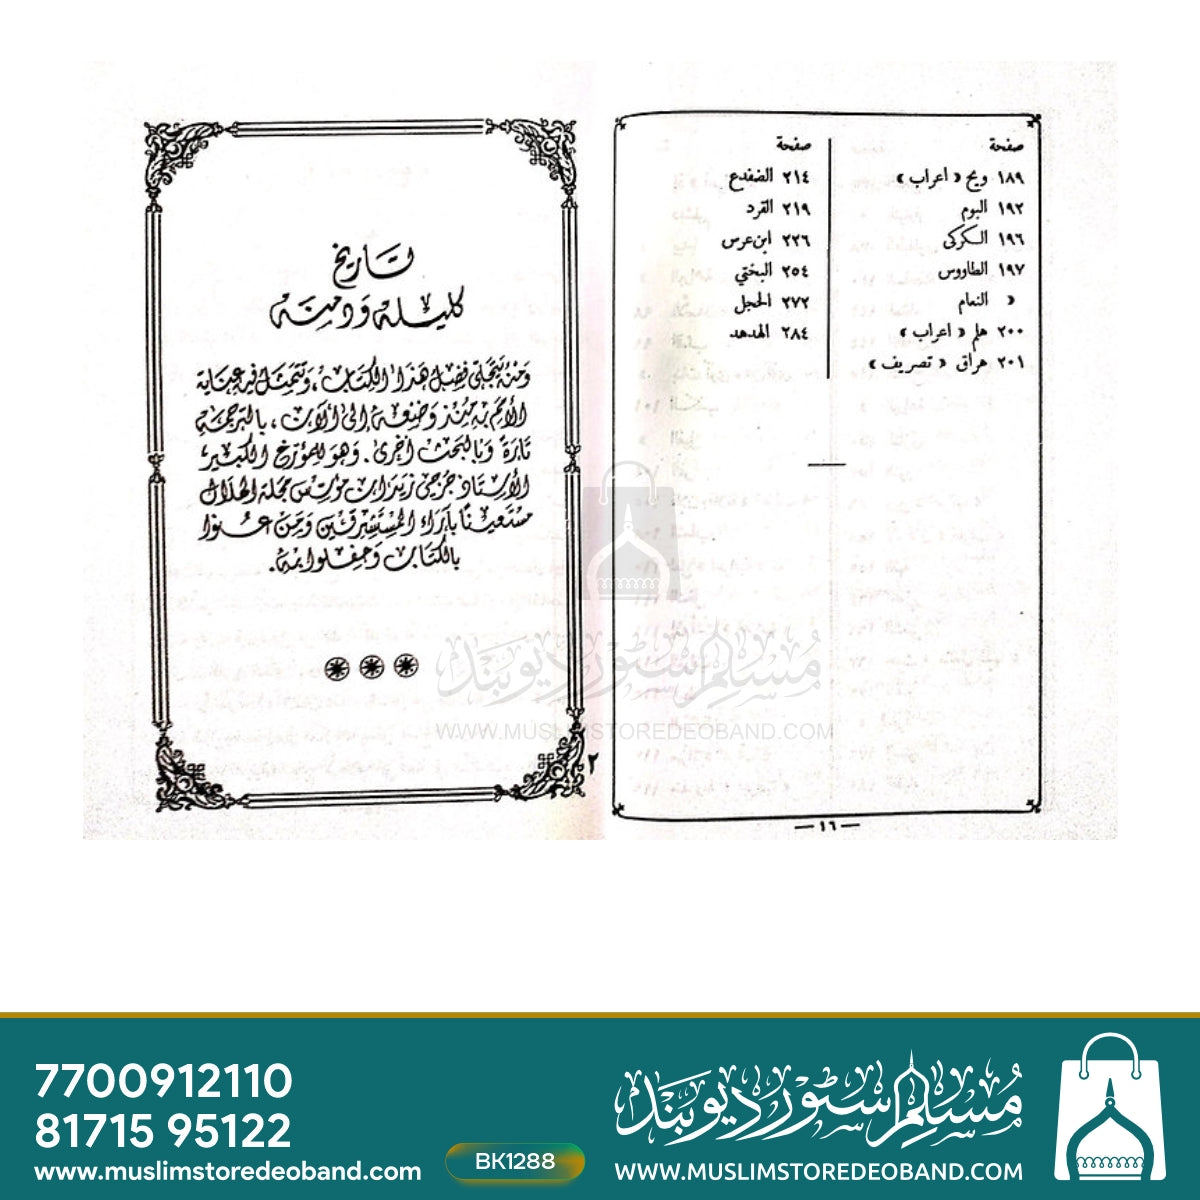 صفحة
١٨٩ ويح « اعراب »
١٩٢ البوم
١٩٦ الكركى
١٩٧ الطاووس
« النمام
٢٠٠ هلم « اعراب »
٢٠١ هراق « تصريف »
صفحة
٢١٤ الضفدع
٢١٩ القرد
٢٣٦ ابن عرس
٢٥٤ البختي
٢٧٢ الحجل
٢٨٤ الهدهد
— ١٦ —
تاريخ
كليلة ودمنة
ومنه يتجلى فضل هذا الكتاب، وتتمثل فيه عناية
الأمم به منذ وضعه إلى الآن، بالترجمة
تارة وبالبحث أخرى. وهو للمؤرخ الكبير،
الأستاذ جرجي زيدان مؤسس مجلة الهلال
مستعيناً بآراء المستشرقين ومن عنوا
بالكتاب وحفلوا به.
٢
مسلم سٹور دیوبند
WWW.MUSLIMSTOREDEOBAND.COM
7700912110
81715 95122
www.muslimstoredeoband.com
BK1288
مسلم سٹور دیوبند
WWW.MUSLIMSTOREDEOBAND.COM